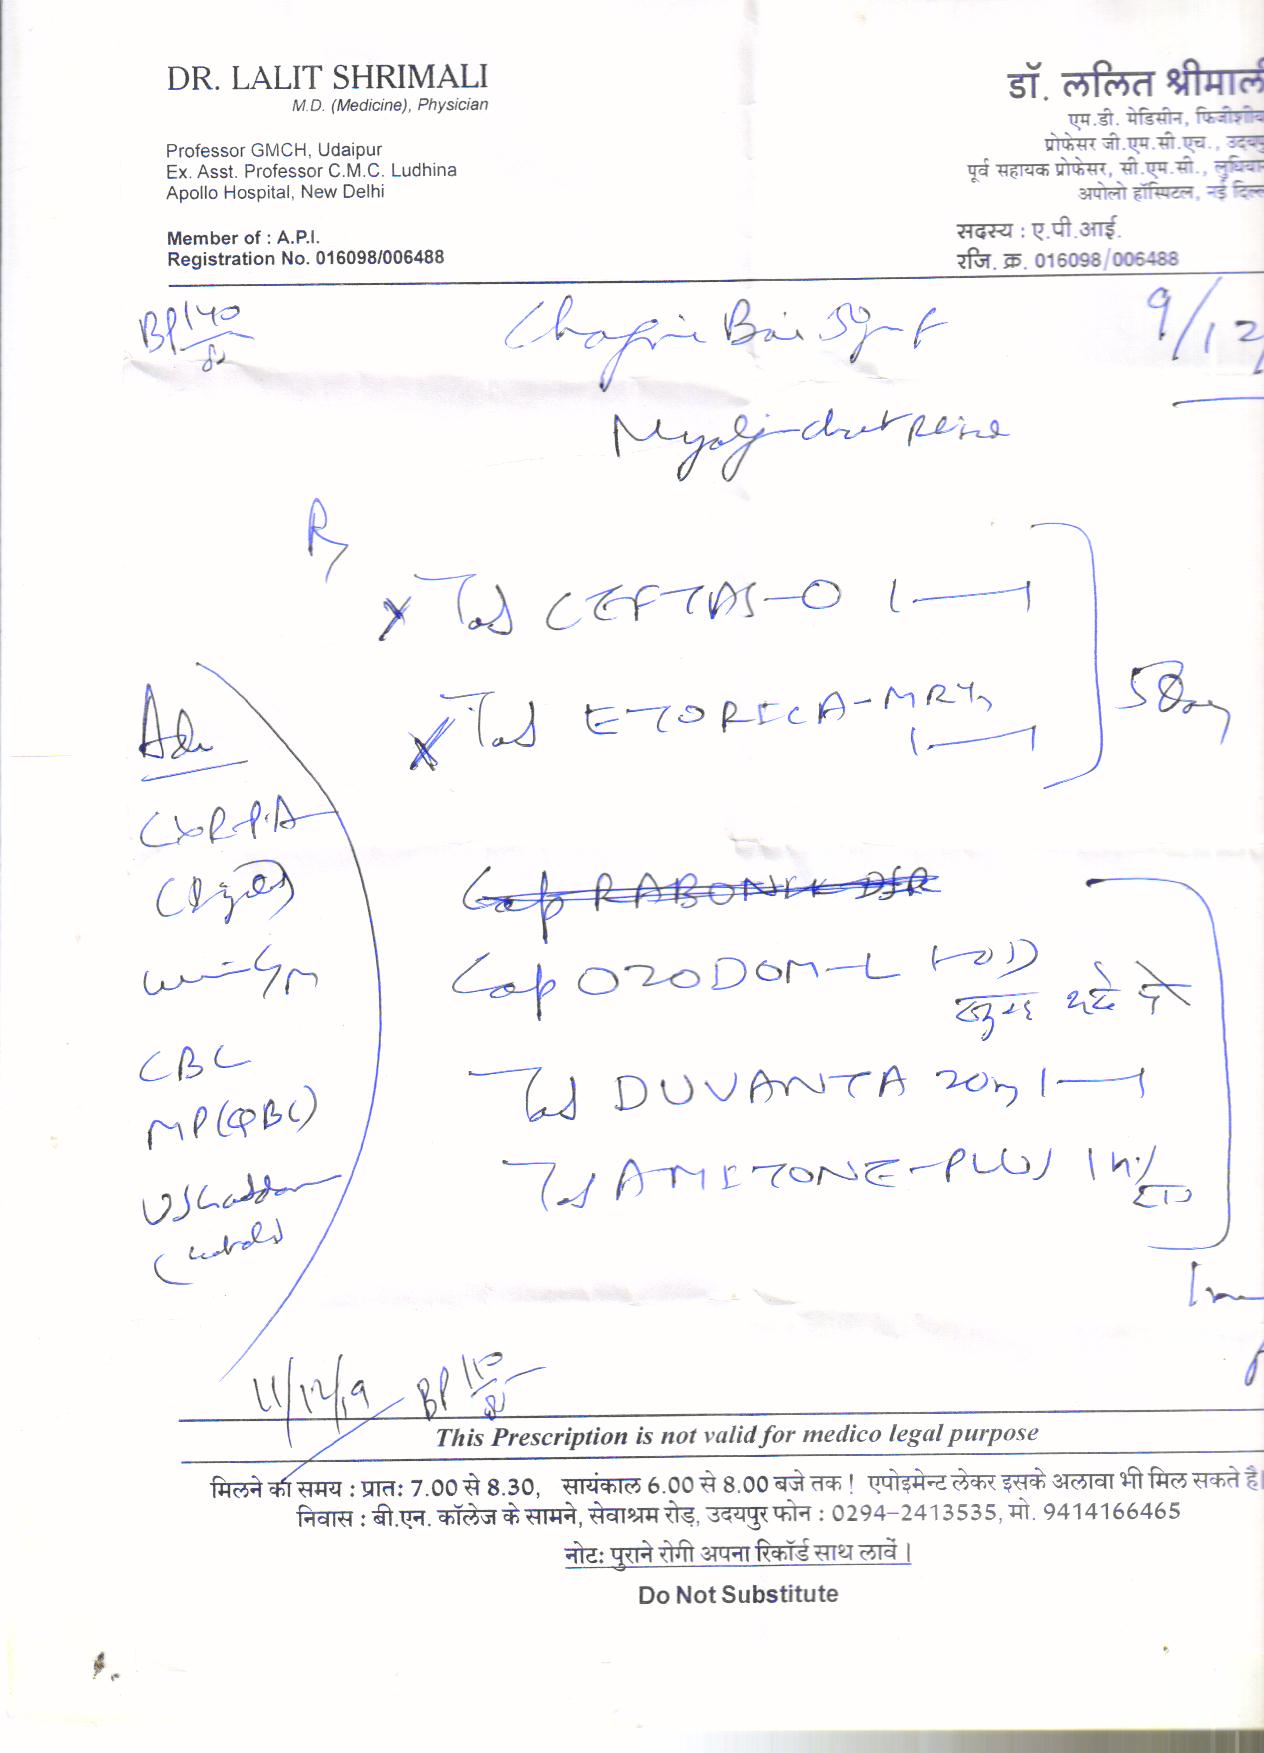 DR. LALIT SHRIMALI
M.D. (Medicine), Physician
Professor GMCH, Udaipur
Ex. Asst. Professor C.M.C. Ludhina
Apollo Hospital, New Delhi
Member of : A.P.I.
Registration No. 016098/006488
डॉ. ललित श्रीमाल
एम.डी. मेडिसीन, फिजीशीय
प्रोफेसर जी.एम.सी.एच., उदयपु
पूर्व सहायक प्रोफेसर, सी.एम.सी., लुधिया
अपोलो हॉस्पिटल, नई दिल्ल
सदस्य : ए.पी.आई.
रजि. क्र. 016098/006488
BP 140/82
Bai 9/12/
Rx
Tab CEFTAS-O 1—1
Tab ETORICA-MR 4mg
1—1
5 Day
Adv
CXR PA
CBC
MP(QBC)
Cap RABONIK DSR
Cap OZODOM-L 1-OD
Tab DUVANTA 20mg 1—1
Tab AMITONE-PLUS
11/12/19 BP 110/80
This Prescription is not valid for medico legal purpose
मिलने का समय : प्रात: 7.00 से 8.30, सायंकाल 6.00 से 8.00 बजे तक ! एपोइमेन्ट लेकर इसके अलावा भी मिल सकते है।
निवास : बी.एन. कॉलेज के सामने, सेवाश्रम रोड़, उदयपुर फोन : 0294-2413535, मो. 9414166465
नोट: पुराने रोगी अपना रिकॉर्ड साथ लावें।
Do Not Substitute